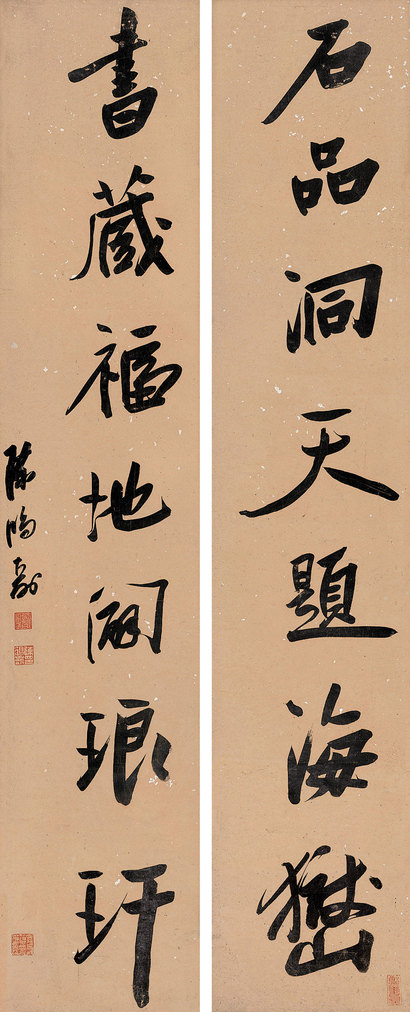 石品洞天題海嶽
書藏福地闢琅玕
陳鴻壽